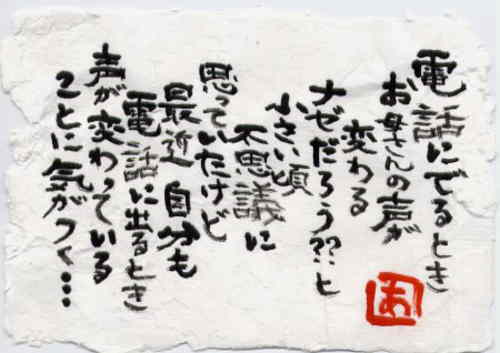 電話にでるとき
お母さんの声が
変わる
ナゼだろう??と
小さい頃
不思議に
思っていたけど
最近自分も
電話に出るとき
声が変わっている
ことに気がつく…